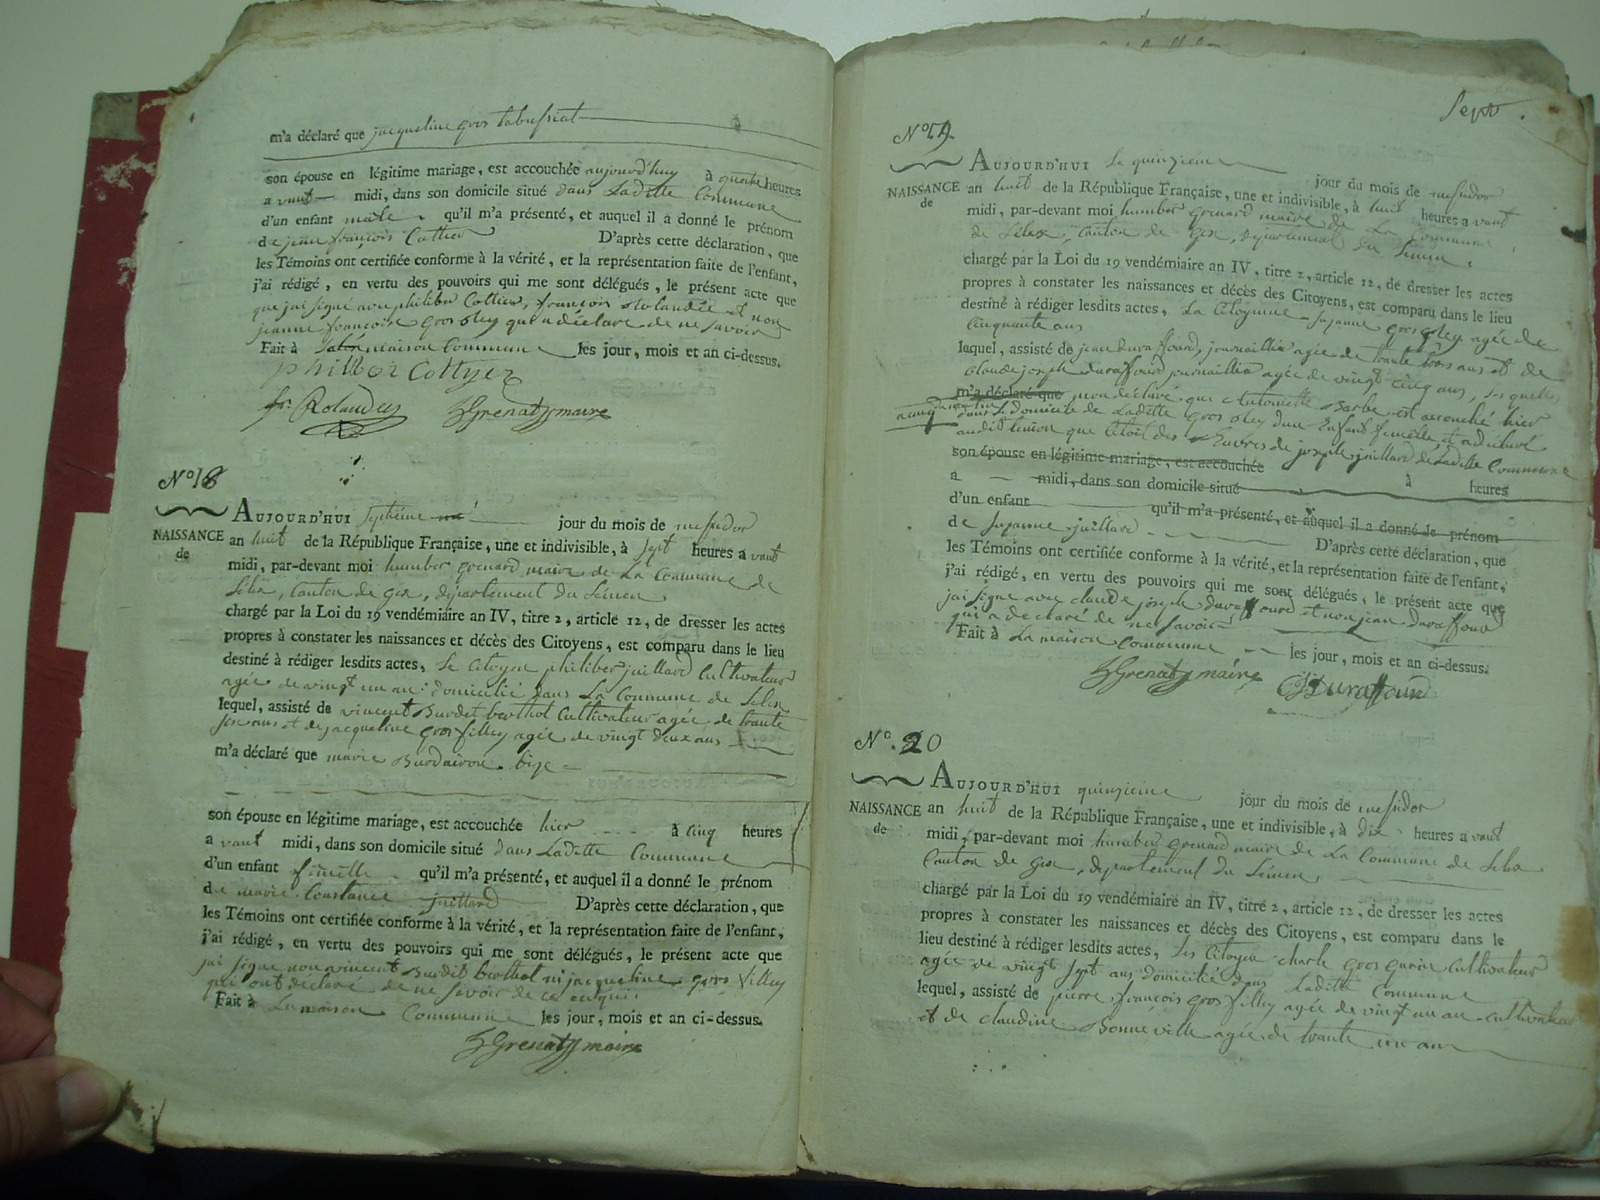 m'a déclaré que jacqueline gros tabussiat
son épouse en légitime mariage, est accouchée aujourd'huy à quatre heures
a vant midi, dans son domicile situé dans Laditte Commune
d'un enfant male qu'il m'a présenté, et auquel il a donné le prénom
de jean françois Cottier D'après cette déclaration, que
les Témoins ont certifiée conforme à la vérité, et la représentation faite de l'enfant,
j'ai rédigé, en vertu des pouvoirs qui me sont délégués, le présent acte que
que jai signé avec philiber Cottier, françois Rolandez et non
jeanne françoise gros oley qui a déclaré de ne savoir
Fait à maison Commune les jour, mois et an ci-dessus.
philiber Cottyer
fr. Rolandez hGrenard maire
N° 18
NAISSANCE
de
AUJOURD'HUI septième jour du mois de messidor
an huit de la République Française, une et indivisible, à sept heures a vant
midi, par-devant moi humber grenard maire de La Commune de
Lelex, Canton de Gex, département du Léman,
chargé par la Loi du 19 vendémiaire an IV, titre 2, article 12, de dresser les actes
propres à constater les naissances et décès des Citoyens, est comparu dans le lieu
destiné à rédiger lesdits actes, Le Citoyen philiber juillard Cultivateur
agée de vingt un an domicilié dans La Commune de Lelex
lequel, assisté de vincent Burdet berthot Cultivateur agée de trante
six ans et de jacqueline gros filley agée de vingt deux ans
m'a déclaré que marie Burdairon bize
son épouse en légitime mariage, est accouchée hier à Cinq heures
a vant midi, dans son domicile situé dans Laditte Commune
d'un enfant fimelle qu'il m'a présenté, et auquel il a donné le prénom
de marie Constance juillard D'après cette déclaration, que
les Témoins ont certifiée conforme à la vérité, et la représentation faite de l'enfant,
j'ai rédigé, en vertu des pouvoirs qui me sont délégués, le présent acte que
jai signé non vincent Burdet berthot ni jacqueline gros filley
qui ont déclaré de ne savoir de ce enquis
Fait à La maison Commune les jour, mois et an ci-dessus.
hGrenard maire
Sept.
N° 19.
NAISSANCE
de
AUJOURD'HUI Le quinzième jour du mois de messidor
an huit de la République Française, une et indivisible, à huit heures a vant
midi, par-devant moi humber Grenard maire de La Commune
de Lelex, Canton de Gex, département du Léman,
chargé par la Loi du 19 vendémiaire an IV, titre 2, article 12, de dresser les actes
propres à constater les naissances et décès des Citoyens, est comparu dans le lieu
destiné à rédiger lesdits actes, La Citoyenne suzanne gros oley agée de
Cinquante ans
lequel, assisté de jean duraffourd, journaillier agée de trante trois ans et de
Claude joseph duraffourd journaillier agée de vingt cinq ans, Lesquels
m'a déclaré que mon déclaré que Antoinette Barbe est accouché hier
dans Le domicile de Laditte gros oley d'une Enfant fimelle, et a déclaré
audit Témoin que C'étoit des Euvres de joseph juillard de Laditte Commune
son épouse en légitime mariage, est accouchée à heures
a midi, dans son domicile situé
d'un enfant qu'il m'a présenté, et auquel il a donné le prénom
de suzanne juillard D'après cette déclaration, que
les Témoins ont certifiée conforme à la vérité, et la représentation faite de l'enfant,
j'ai rédigé, en vertu des pouvoirs qui me sont délégués, le présent acte que
jai signé avec claude joseph duraffourd et non jean duraffourd
qui a déclaré de ne savoir
Fait à La maison Commune les jour, mois et an ci-dessus.
hGrenard maire CJDuraffourd
N°. 20
NAISSANCE
de
AUJOURD'HUI quinzieme jour du mois de messidor
an huit de la République Française, une et indivisible, à dix heures a vant
midi, par-devant moi humber grenard maire de La Commune de Lelex
Canton de Gex, département du Léman,
chargé par la Loi du 19 vendémiaire an IV, titre 2, article 12, de dresser les actes
propres à constater les naissances et décès des Citoyens, est comparu dans le
lieu destiné à rédiger lesdits actes, Les Citoyen charle gros gurin Cultivateur
agée de vingt sept ans domicilié dans Laditte Commune
lequel, assisté de pierre françois gros filley agée de vingt un an Cultivateur
et de claudine Bonneville agée de trante un ans